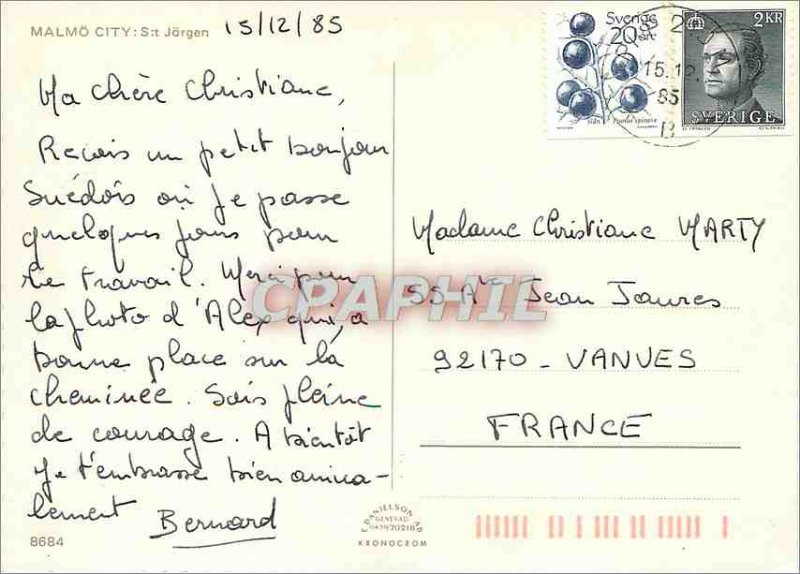 MALMÖ CITY: S:t Jörgen
15/12/85
Ma chère Christiane,
Reçois un petit bonjour
Suédois où je passe
quelques jours pour
le travail. Merci pour
la photo d'Alex qui a
bonne place sur la
cheminée. Sois pleine
de courage. A bientôt
Je t'embrasse bien amica-
lement Bernard
8684
Sverige
20 öre
Slån Prunus spinosa
2 KR
SVERIGE
15.12.
85
Madame Christiane MARTY
55 Ave Jean Jaures
92170 - VANVES
FRANCE
CPAPHIL
DANIELSON AB
GENEVAD
KRONOCROM